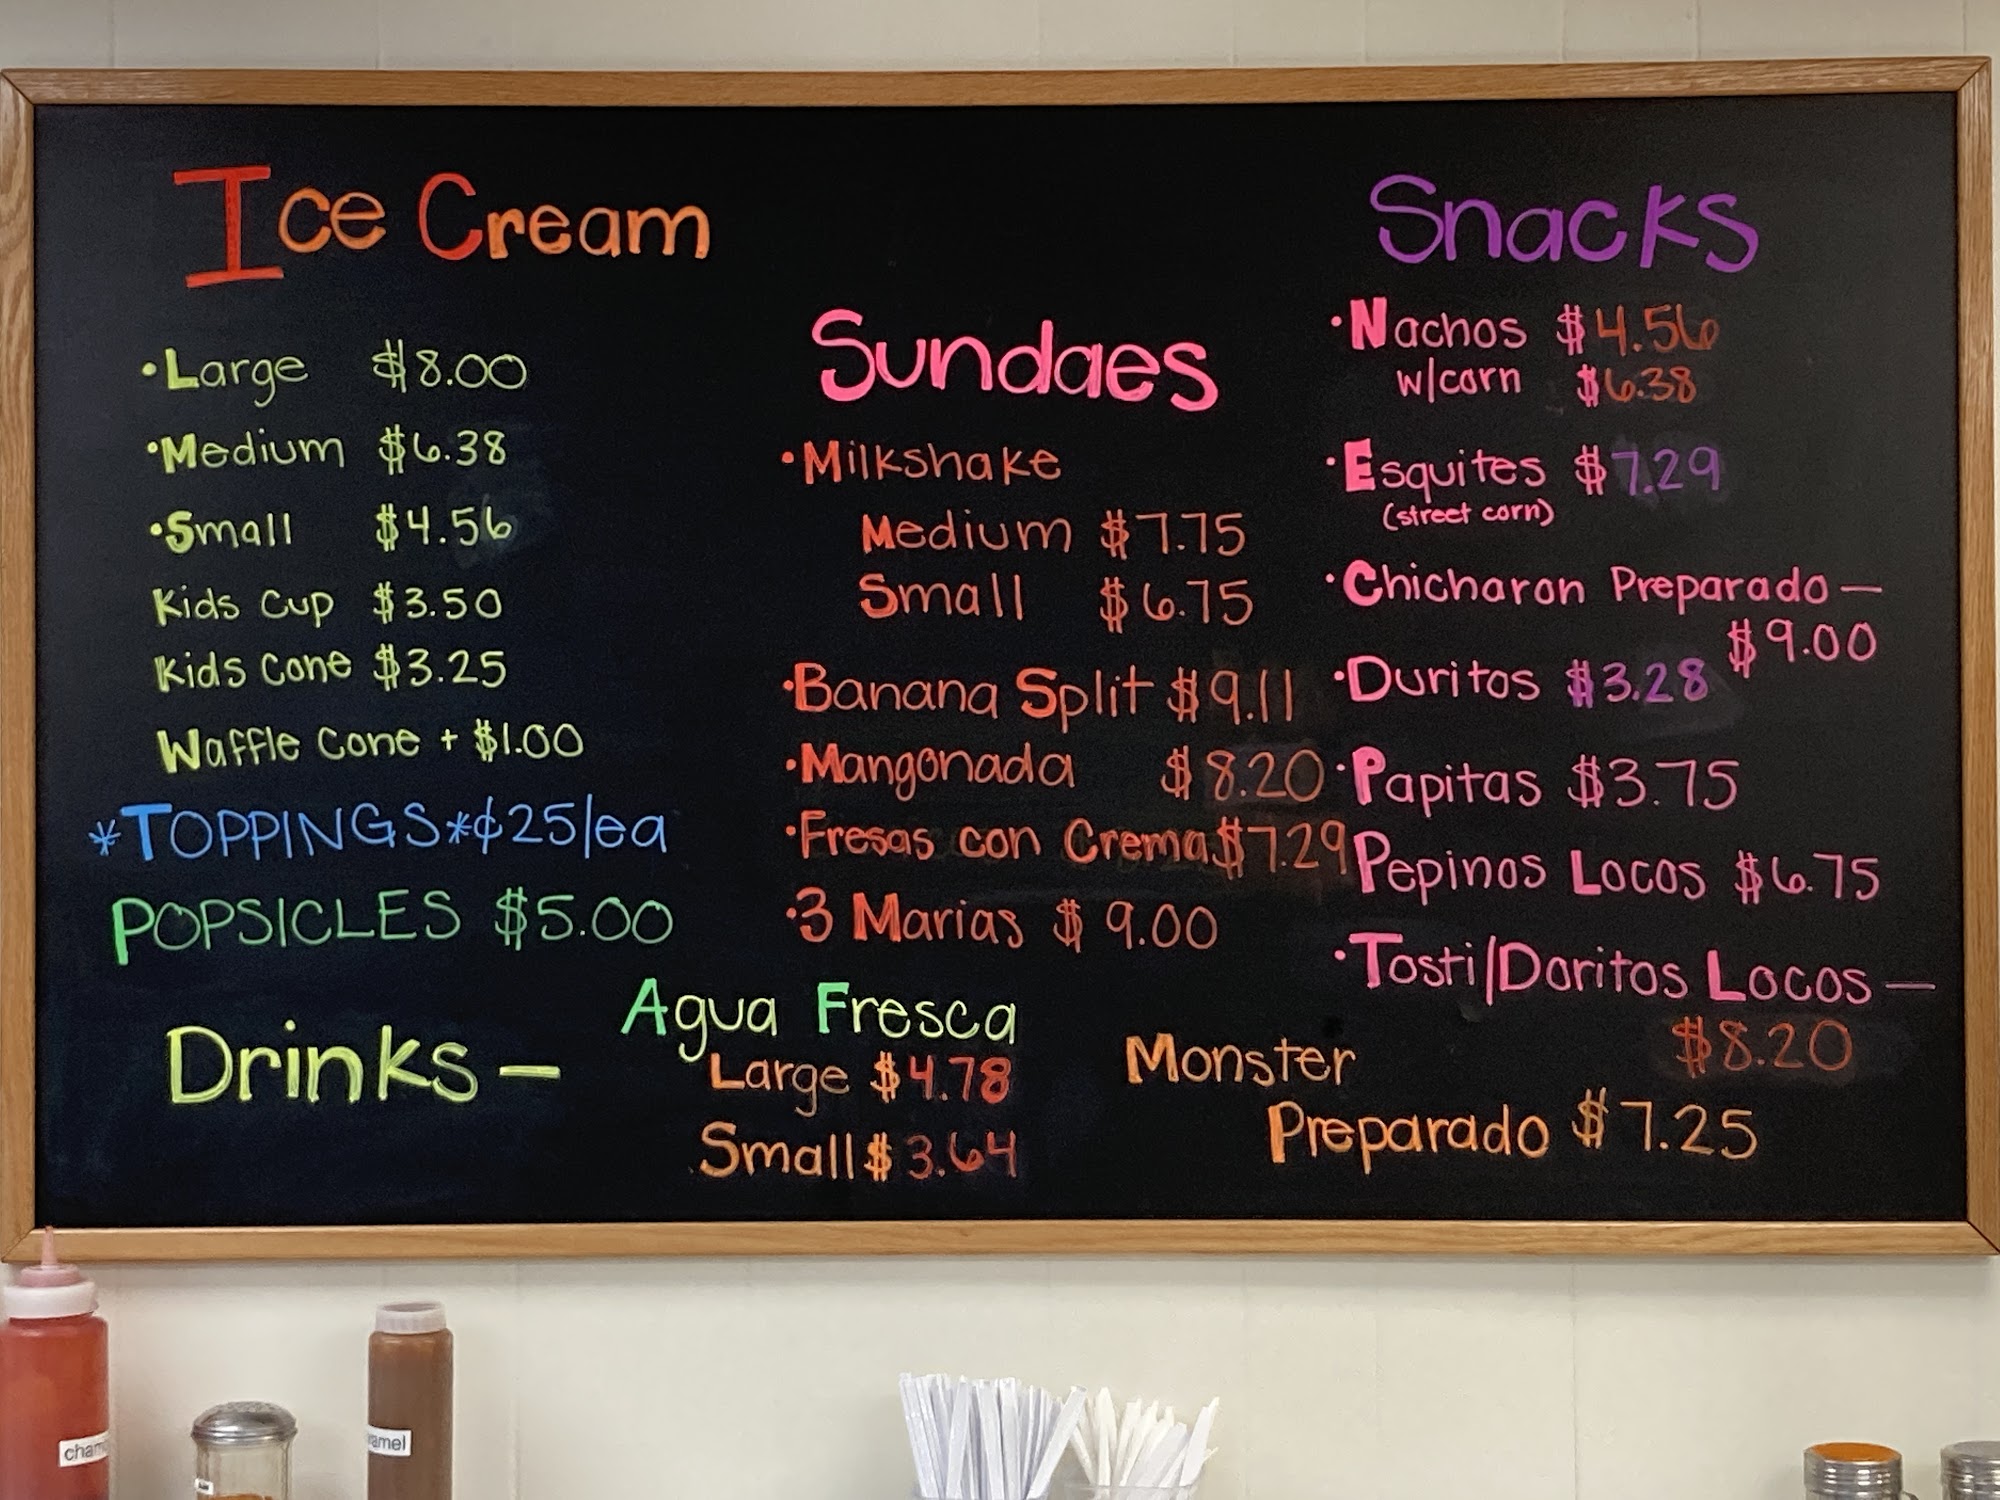 Ice Cream
•Large $8.00
•Medium $6.38
•Small $4.56
Kids Cup $3.50
Kids Cone $3.25
Waffle Cone + $1.00
*TOPPINGS*¢25/ea
POPSICLES $5.00
Sundaes
•Milkshake
Medium $7.75
Small $6.75
•Banana Split $9.11
•Mangonada $8.20
•Fresas con Crema $7.29
•3 Marias $9.00
Snacks
•Nachos $4.56
w/corn $6.38
•Esquites $7.29
(street corn)
•Chicharon Preparado —
$9.00
•Duritos $3.28
•Papitas $3.75
Pepinos Locos $6.75
•Tosti/Doritos Locos —
$8.20
Drinks —
Agua Fresca
Large $4.78
Small $3.64
Monster
Preparado $7.25